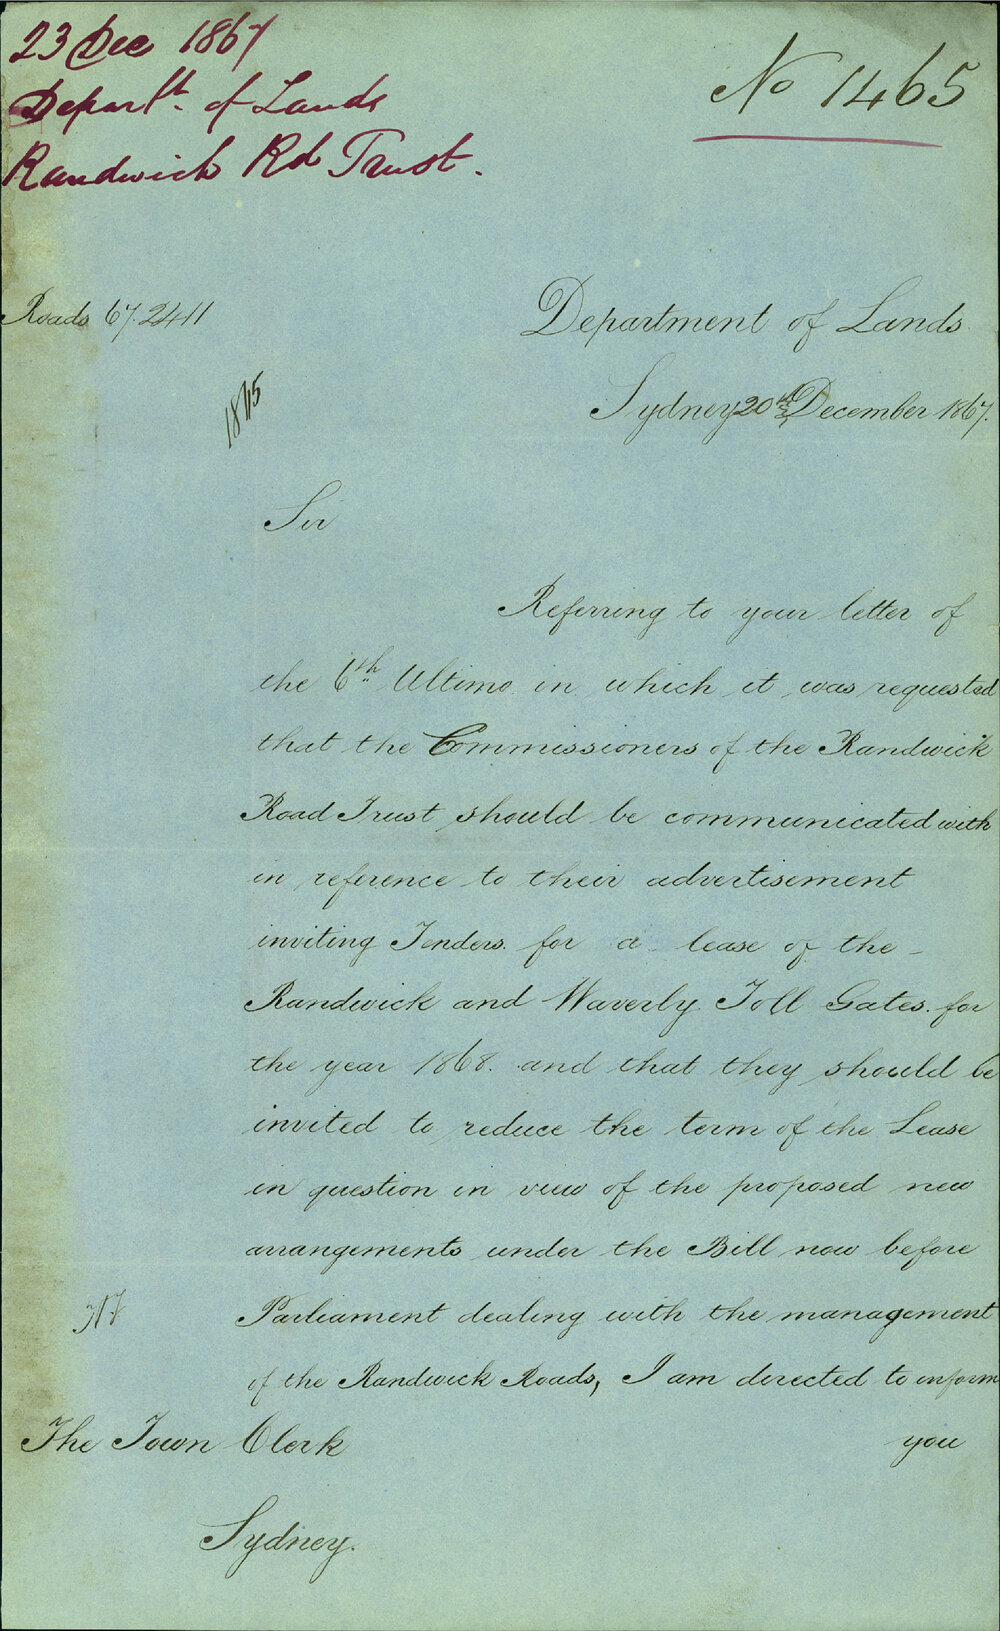 23 Dec 1867
Departt. of Lands
Randwich Rd Trust.
No 1465
Roads 67.2411
Department of Lands
Sydney 20th December 1867.
Sir
Referring to your letter of
the 6th Ultimo in which it was requested
that the Commissioners of the Randwick
Road Trust should be communicated with
in reference to their advertisement
inviting Tenders for a lease of the
Randwick and Waverly Toll Gates for
the year 1868. and that they should be
invited to reduce the term of the Lease
in question in view of the proposed new
arrangements under the Bill now before
Parliament dealing with the management
of the Randwick Roads, I am directed to inform
you
The Town Clerk
Sydney.